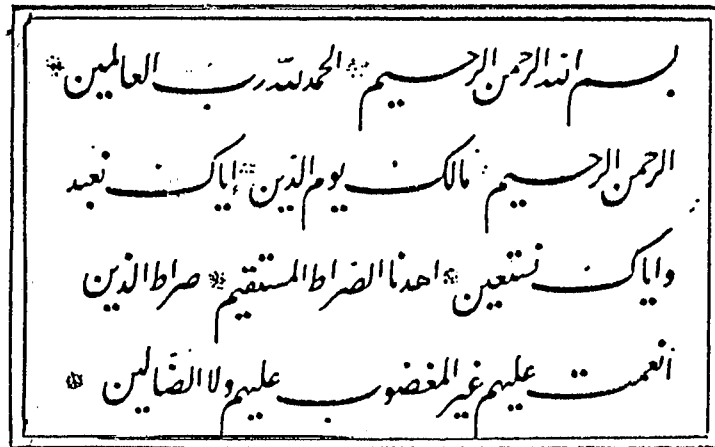 بسم الله الرحمن الرحيم * الحمد لله رب العالمين *
الرحمن الرحيم * مالك يوم الدين * إياك نعبد
واياك نستعين * اهدنا الصراط المستقيم * صراط الذين
انعمت عليهم غير المغضوب عليهم ولا الضّالين *